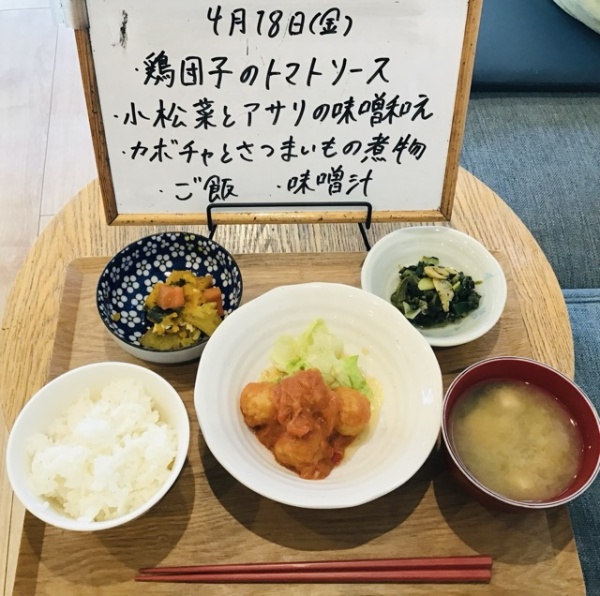 4月18日(金)
・鶏団子のトマトソース
・小松菜とアサリの味噌和え
・カボチャとさつまいもの煮物
・ご飯 ・味噌汁